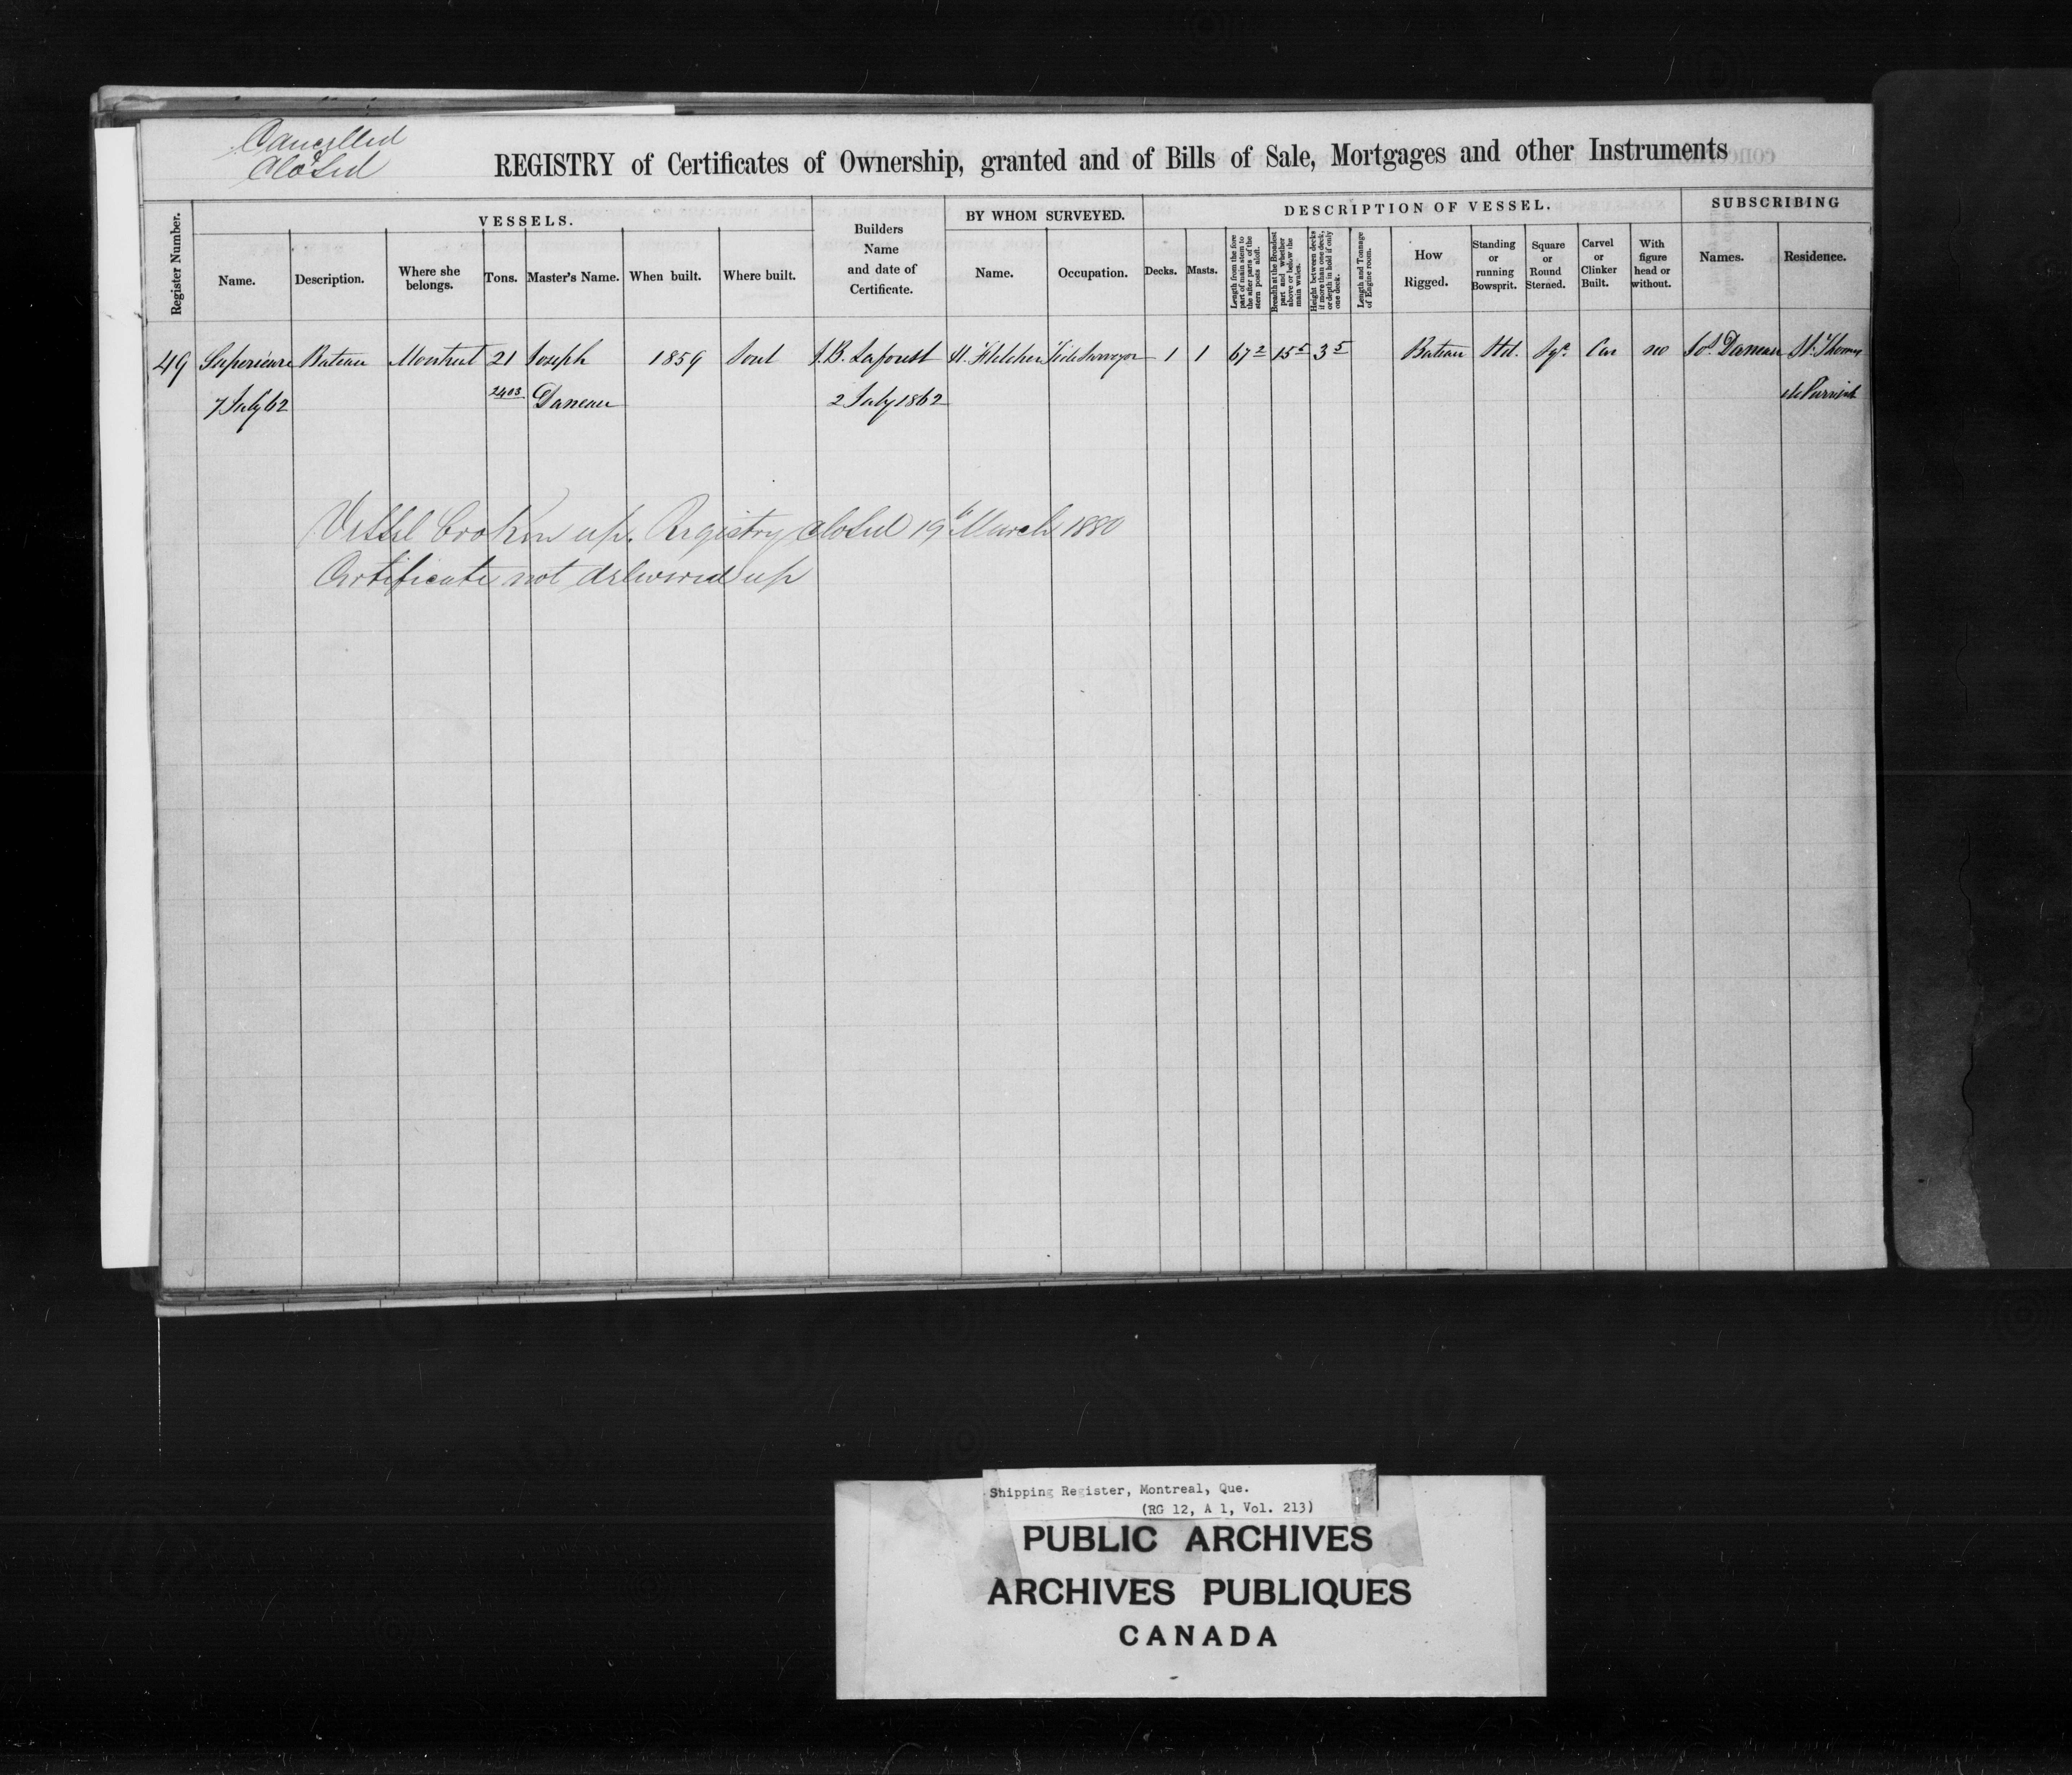 Cancelled
Closed
REGISTRY of Certificates of Ownership, granted and of Bills of Sale, Mortgages and other Instruments
Register Number.
VESSELS.
Name.
Description.
Where she belongs.
Tons.
Master's Name.
When built.
Where built.
Builders Name and date of Certificate.
BY WHOM SURVEYED.
Name.
Occupation.
DESCRIPTION OF VESSEL.
Decks.
Masts.
Length from the fore part of main stem to the after parts of the stern posts aloft.
Breadth at the Broadest part and whether above or below the main wales.
Height between decks if more than one deck, or depth in hold if only one deck.
Length and Tonnage of Engine room.
How Rigged.
Standing or running Bowsprit.
Square or Round Sterned.
Carvel or Clinker Built.
With figure head or without.
SUBSCRIBING
Names.
Residence.
49 Superieure Bateau Montreal 21 Joseph 1859 Sorel J.B. Laforest H. Fletcher Tide Surveyor 1 1 67 2 15 5 3 5 Bateau Std. Sqe. Car no Jos. Daneau St. Thomas
7 July 62 2403 Daneau 2 July 1862 de
Vessel broken up. Registry closed 19th March 1880
Certificate not delivered up
Shipping Register, Montreal, Que.
(RG 12, A 1, Vol. 213)
PUBLIC ARCHIVES
ARCHIVES PUBLIQUES
CANADA